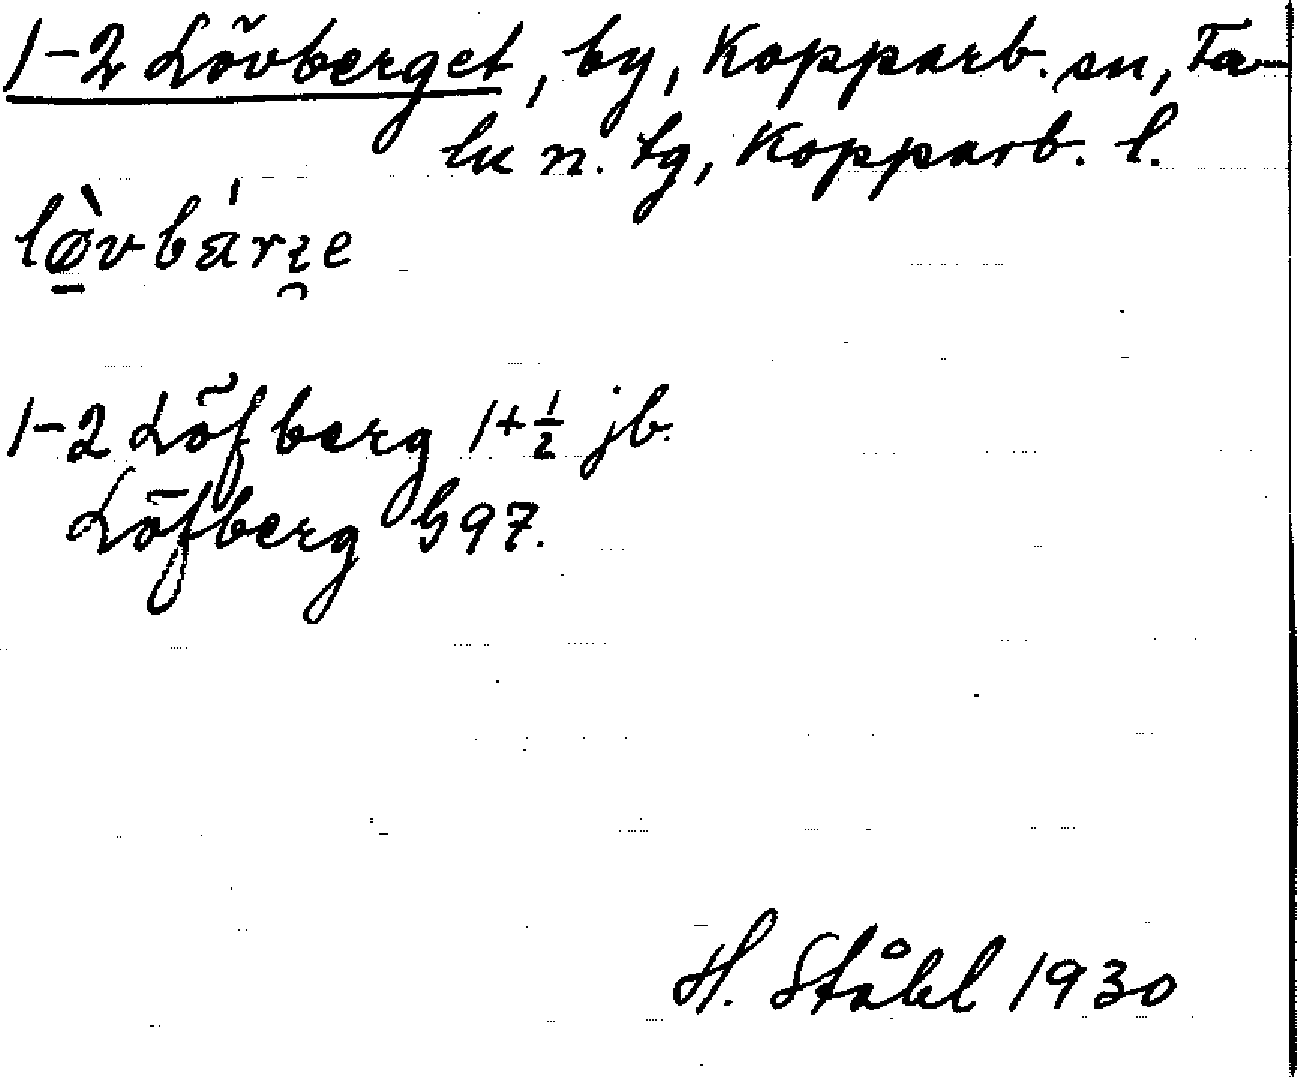 1-2 Lövberget, by, Kopparb. sn, Fa-
lu n. tg, Kopparb. l.
lø̠̀vbárı̯e
1-2 Löfberg 1+½ jb.
Löfberg G97.
H. Ståhl 1930